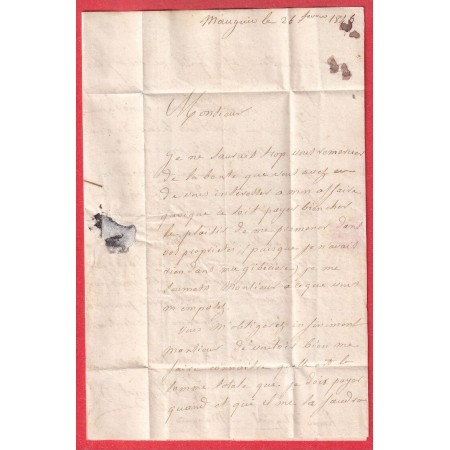 Mauguio le 26 fevrier 1846
Monsieur
Je ne saurait trop vous remercier
de la bonté que vous avez eu
de vous interesser a mon affaire,
quoique ce soit payer bien cher
le plaisir de me promener dans
vos proprietes (puisque je n'avait
rien dans ma gibeciere) je me
soumets Monsieur a ce que vous
m'imposez.
Vous m'obligerez infiniment
Monsieur de vouloir bien me
faire connaitre quelle est la
somme totale que je dois payer
quand et que il me la faudra